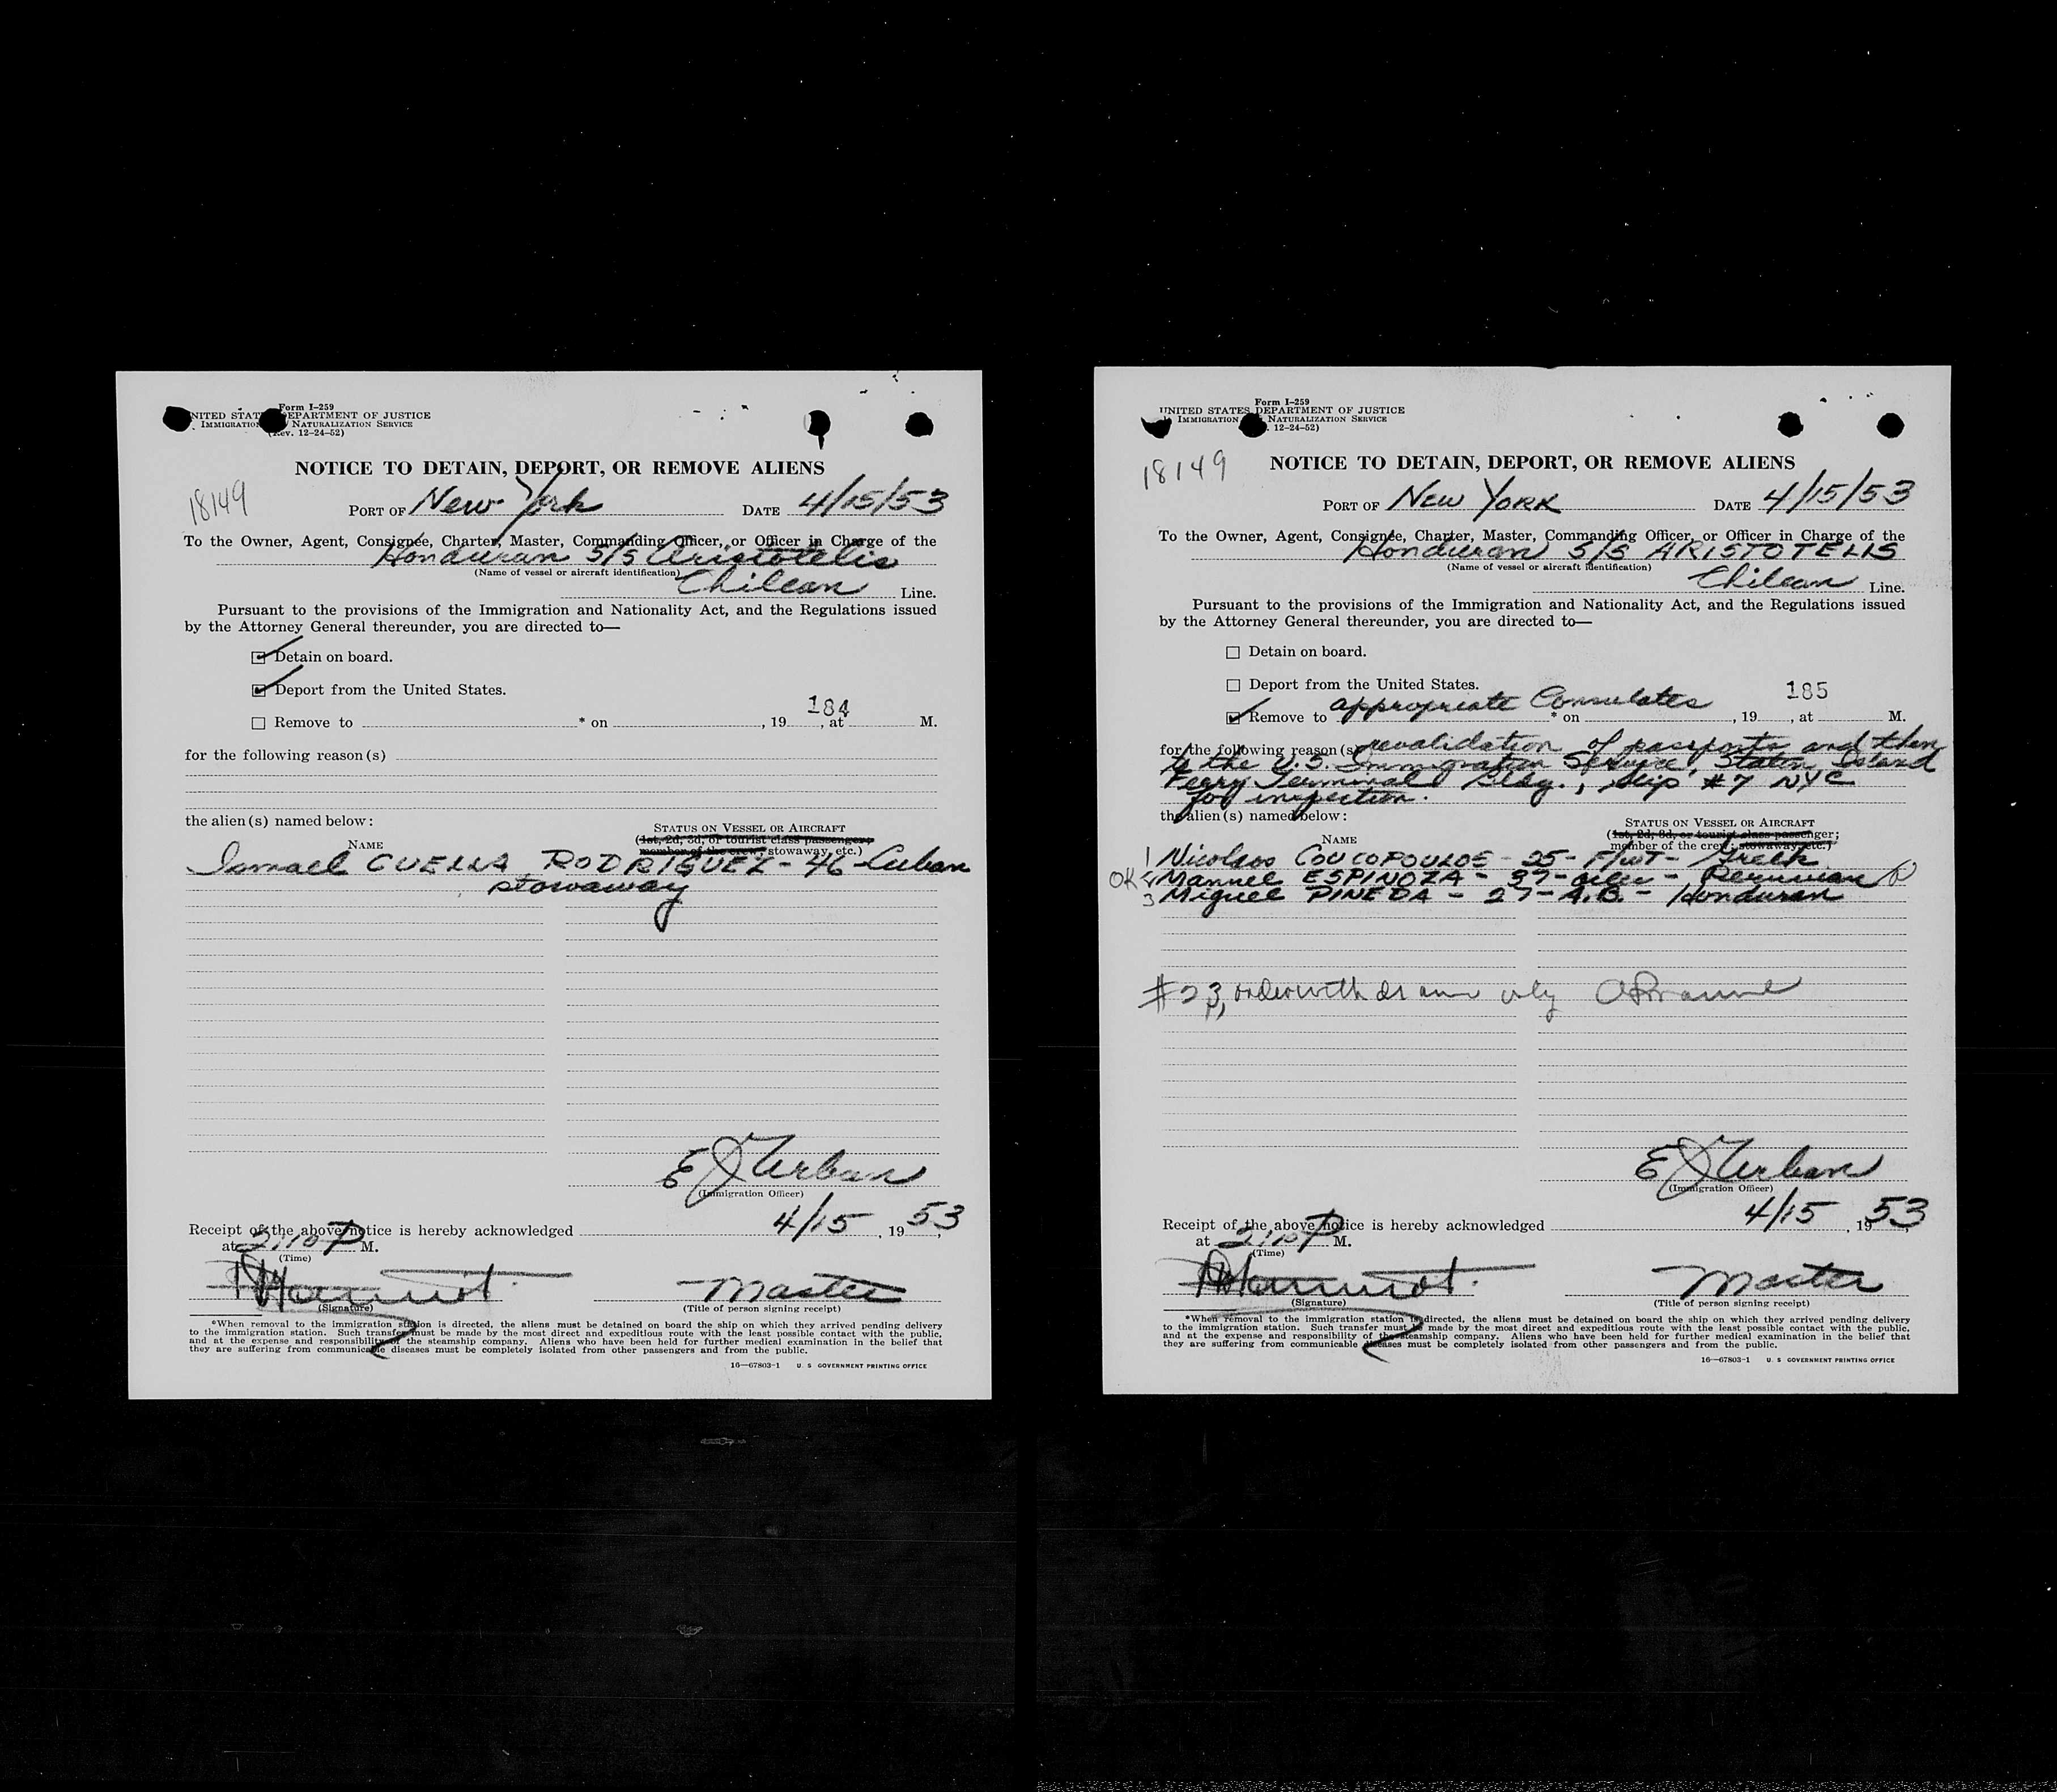 Form I-259
UNITED STATES DEPARTMENT OF JUSTICE
IMMIGRATION NATURALIZATION SERVICE
(Rev. 12-24-52)
NOTICE TO DETAIN, DEPORT, OR REMOVE ALIENS
18149
PORT OF New York DATE 4/15/53
To the Owner, Agent, Consignee, Charter, Master, Commanding Officer, or Officer in Charge of the
Honduran S/S Aristotelis
(Name of vessel or aircraft identification)
Chilean Line.
Pursuant to the provisions of the Immigration and Nationality Act, and the Regulations issued
by the Attorney General thereunder, you are directed to—
Detain on board.
Deport from the United States.
184
Remove to * on , 19 , at M.
for the following reason(s)
the alien(s) named below:
STATUS ON VESSEL OR AIRCRAFT
(1st, 2d, 3d, or tourist class passenger;
member of the crew; stowaway, etc.)
NAME
Ismael CUELLA RODRIGUEZ - 46 - Cuban
stowaway
E J Urban
(Immigration Officer)
Receipt of the above notice is hereby acknowledged 4/15, 1953,
at 2:10 P M.
(Time)
Master
(Signature) (Title of person signing receipt)
*When removal to the immigration station is directed, the aliens must be detained on board the ship on which they arrived pending delivery
to the immigration station. Such transfer must be made by the most direct and expeditious route with the least possible contact with the public,
and at the expense and responsibility of the steamship company. Aliens who have been held for further medical examination in the belief that
they are suffering from communicable diseases must be completely isolated from other passengers and from the public.
16—67803-1 U. S. GOVERNMENT PRINTING OFFICE
Form I-259
UNITED STATES DEPARTMENT OF JUSTICE
IMMIGRATION NATURALIZATION SERVICE
12-24-52)
18149
NOTICE TO DETAIN, DEPORT, OR REMOVE ALIENS
PORT OF NEW YORK DATE 4/15/53
To the Owner, Agent, Consignée, Charter, Master, Commanding Officer, or Officer in Charge of the
Honduran S/S ARISTOTELIS
(Name of vessel or aircraft identification)
Chilean Line.
Pursuant to the provisions of the Immigration and Nationality Act, and the Regulations issued
by the Attorney General thereunder, you are directed to—
Detain on board.
Deport from the United States.
185
Remove to appropriate Consulates * on , 19 , at M.
for the following reason(s) revalidation of passports and then
to the U.S. Immigration Service, Staten Island
Ferry Terminal Bldg., Slip #7 NYC
for inspection.
the alien(s) named below:
STATUS ON VESSEL OR AIRCRAFT
(1st, 2d, 3d, or tourist class passenger;
member of the crew; stowaway, etc.)
NAME
1 Nicolaos COUCOPOULOS - 25 - F/WT - Greek
OK 2 Manuel ESPINOZA - 37 - oiler - Peruvian
3 Miguel PINEDA - 27 - A.B. - Honduran
#23, order withdrawn only
E J Urban
(Immigration Officer)
Receipt of the above notice is hereby acknowledged 4/15, 1953,
at 2:10 P M.
(Time)
Master
(Signature) (Title of person signing receipt)
*When removal to the immigration station is directed, the aliens must be detained on board the ship on which they arrived pending delivery
to the immigration station. Such transfer must be made by the most direct and expeditious route with the least possible contact with the public,
and at the expense and responsibility of the steamship company. Aliens who have been held for further medical examination in the belief that
they are suffering from communicable diseases must be completely isolated from other passengers and from the public.
16—67803-1 U. S. GOVERNMENT PRINTING OFFICE